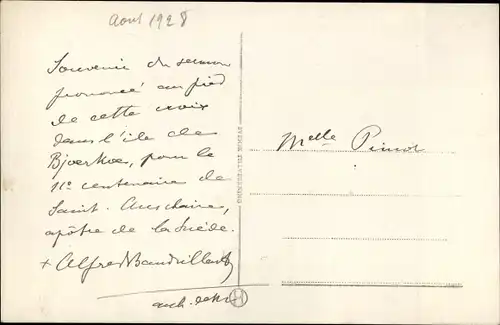 Aout 1928
Souvenir du sermon
prononcé au pied
de cette croix
dans l'ile de
Bjoerkoe, pour le
11e centenaire de
Saint. Anschaire,
apôtre de la Suède.
+ Alfred Baudrillart
arch. de
Melle Pinot